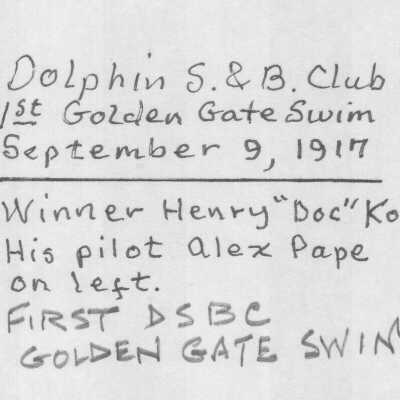 Dolphin S. & B. Club
1st Golden Gate Swim
September 9, 1917
Winner Henry "Doc" Ko
His pilot Alex Pape
on left.
FIRST DSBC
GOLDEN GATE SWIM